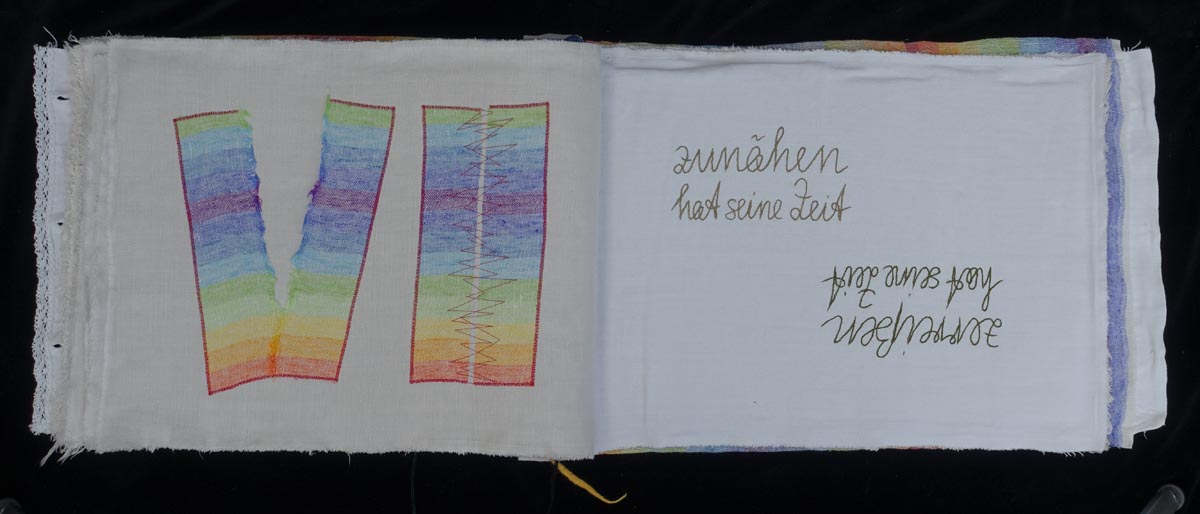 zunähen
hat seine Zeit
zerreißen
hat seine Zeit